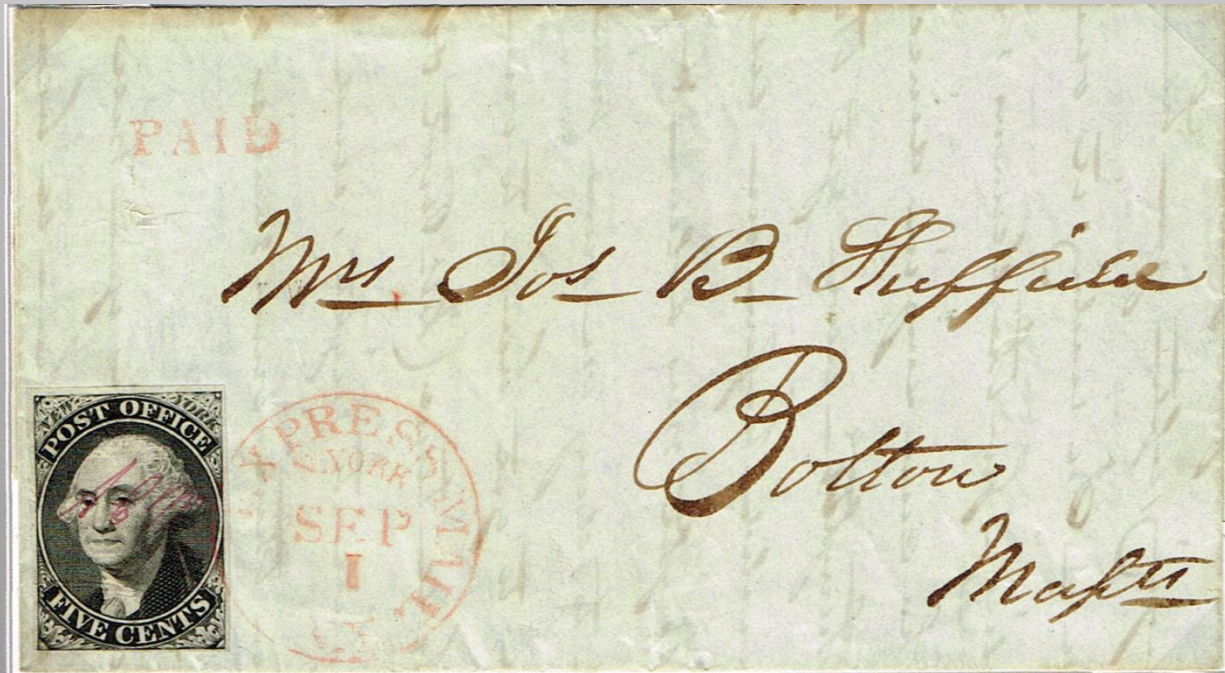 PAID
Mrs Jos B Sheffield
Bolton
Massts
NEW YORK
POST OFFICE
FIVE CENTS
EXPRESS MAIL
N. YORK
SEP
1